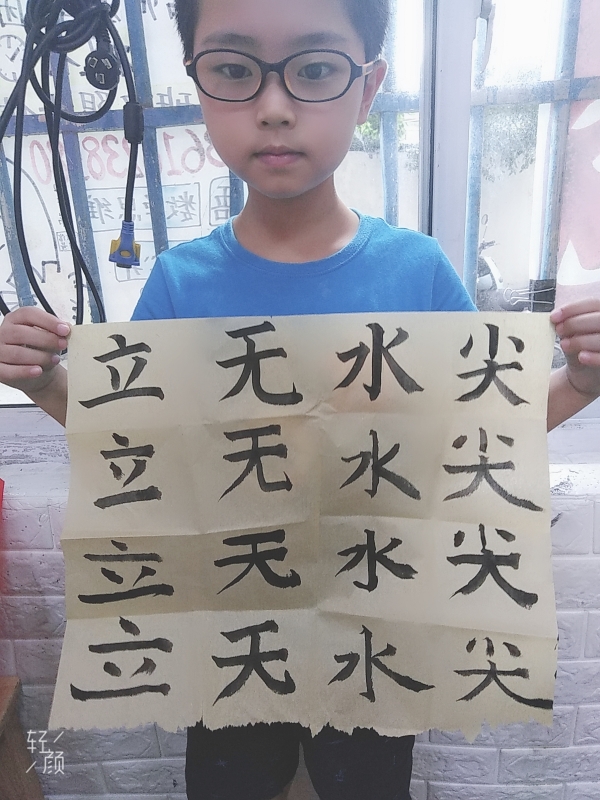 立无水尖
立无水尖
立无水尖
立无水尖
轻颜